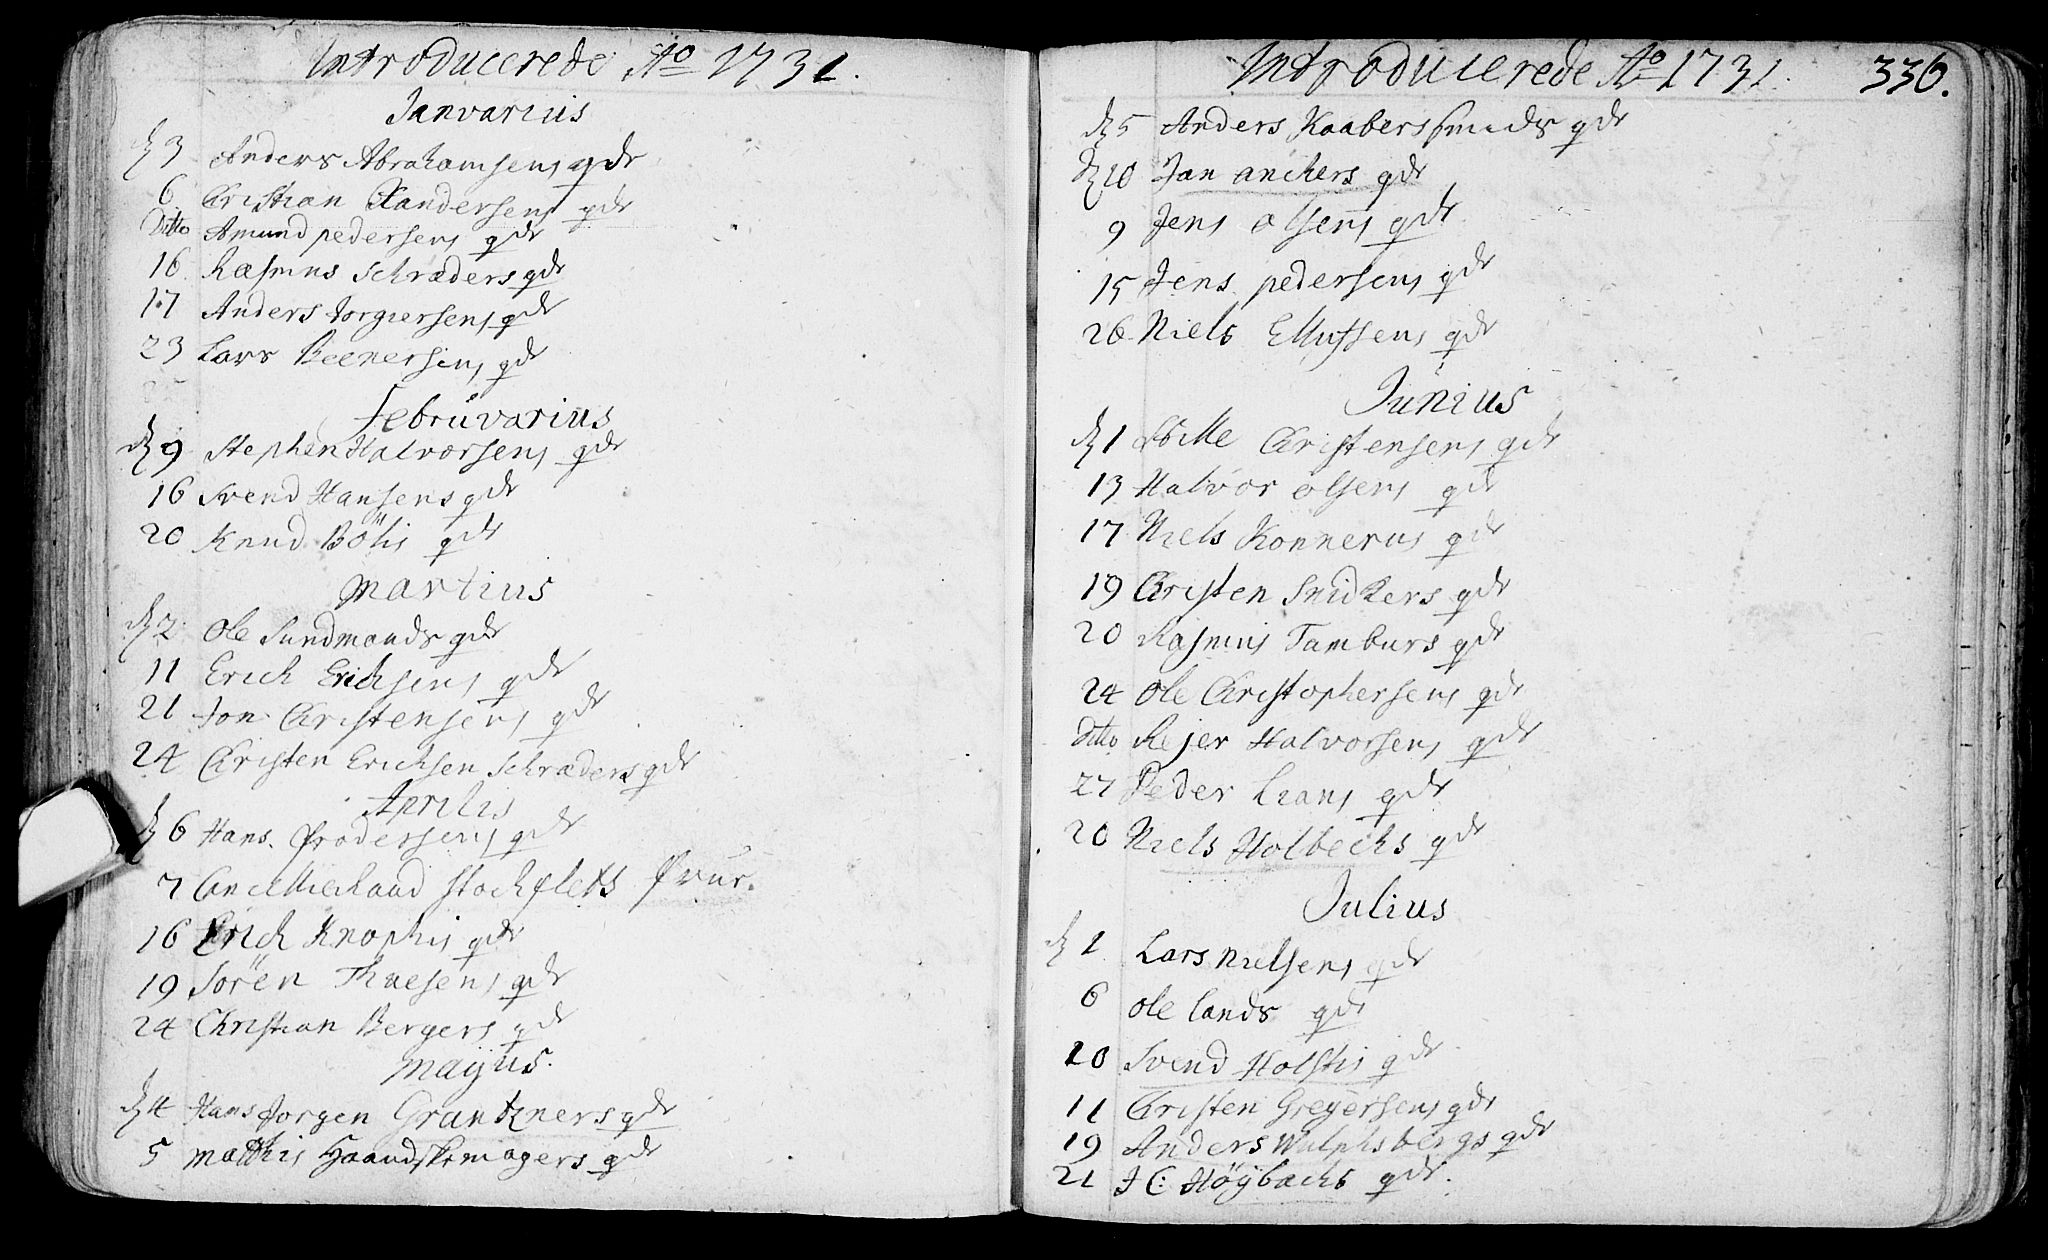 Introducerede Ao 1731.
Janvarius
d 3 Anders Abrahamsens qde
6 Christian Sandersens qde
Ditto Amund pedersens qde
16 Rasmus Schræders qde
17 Anders Jorgiersens qde
23 Lars Reenersens qde
Februvarius
d 9 Stephen Halvorsens qde
16 Svend Hansens qde
20 Knud Böhs qde
Martius
d 2 Ole Sundmands qde
11 Erich Erichsens qde
21 Jon Christensens qde
24 Christen Erichsen Schræders qde
Aprilis
d 6 Hans Frodersens qde
7 Cancellieraad Stochflets Fruer.
16 Erich Knophs qde
19 Sören Thuesens qde
24 Christian Bergers qde
Mayus.
d 4 Hans Jorgen Grantzners qde
5 Matthis Haandskemagers qde
Introducerede Ao 1731. 336.
d 5 Anders Kaabersmeds qde
d 10 Jan anchers qde
9 Jens Olsens qde
15 Jens pedersens qde
26 Niels Ellufsens qde
Junius
d 1 Christensens qde
13 Halvor Olsens qde
17 Niels Konnerus qde
19 Christen Snidkers qde
20 Rasmus Tamburs qde
24 Ole Christophersens qde
Ditto Rejer Halvorsens qde
27 Peder Lians qde
20 Niels Holbechs qde
Julius
d 1 Lars Nielsens qde
6 Ole Lands qde
10 Svend Holsts qde
11 Christen Greyersens qde
19 Anders Wulphsbergs qde
21 J C: Höybachs qde.